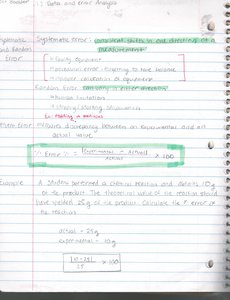 (1) Data and error Analysis
Systematic Error : consistent shifts in one direction of a
and Random measurement
Error → Faulty equipment
→ forgetting to tare balance
→ calibration of equipment
Random Error : can vary in either direction
→ Human limitations
→
Ex: reading a meniscus
Percent Error : Measures discrepancy between an experimental and an
actual value.
% Error % = |Experimental - Actual| / Actual × 100
Example A student performed a chemical reaction and obtains 10g
of the product. The theoretical value of the reaction should
have yielded 25g of the product. Calculate the % error of
the reaction.
actual = 25g
experimental = 10g
|10-25| / 25 × 100